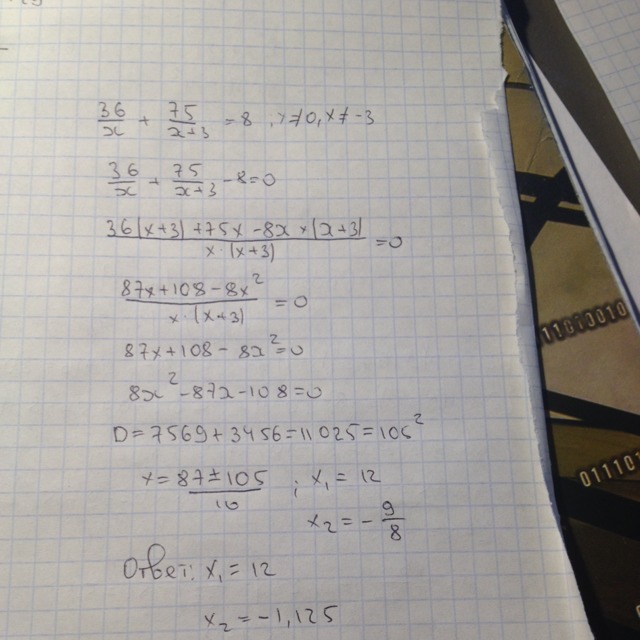 36/x + 75/(x+3) = 8, x≠0, x≠-3
36/x + 75/(x+3) - 8=0
(36(x+3)+75x-8x×(x+3))/(x·(x+3)) =0
(87x+108-8x²)/(x·(x+3)) =0
87x+108-8x²=0
8x²-87x-108=0
D=7569+3456=11025=105²
x=(87±105)/16 ; x₁=12
x₂=-9/8
Ответ: x₁=12
x₂=-1,125
11013010
011101